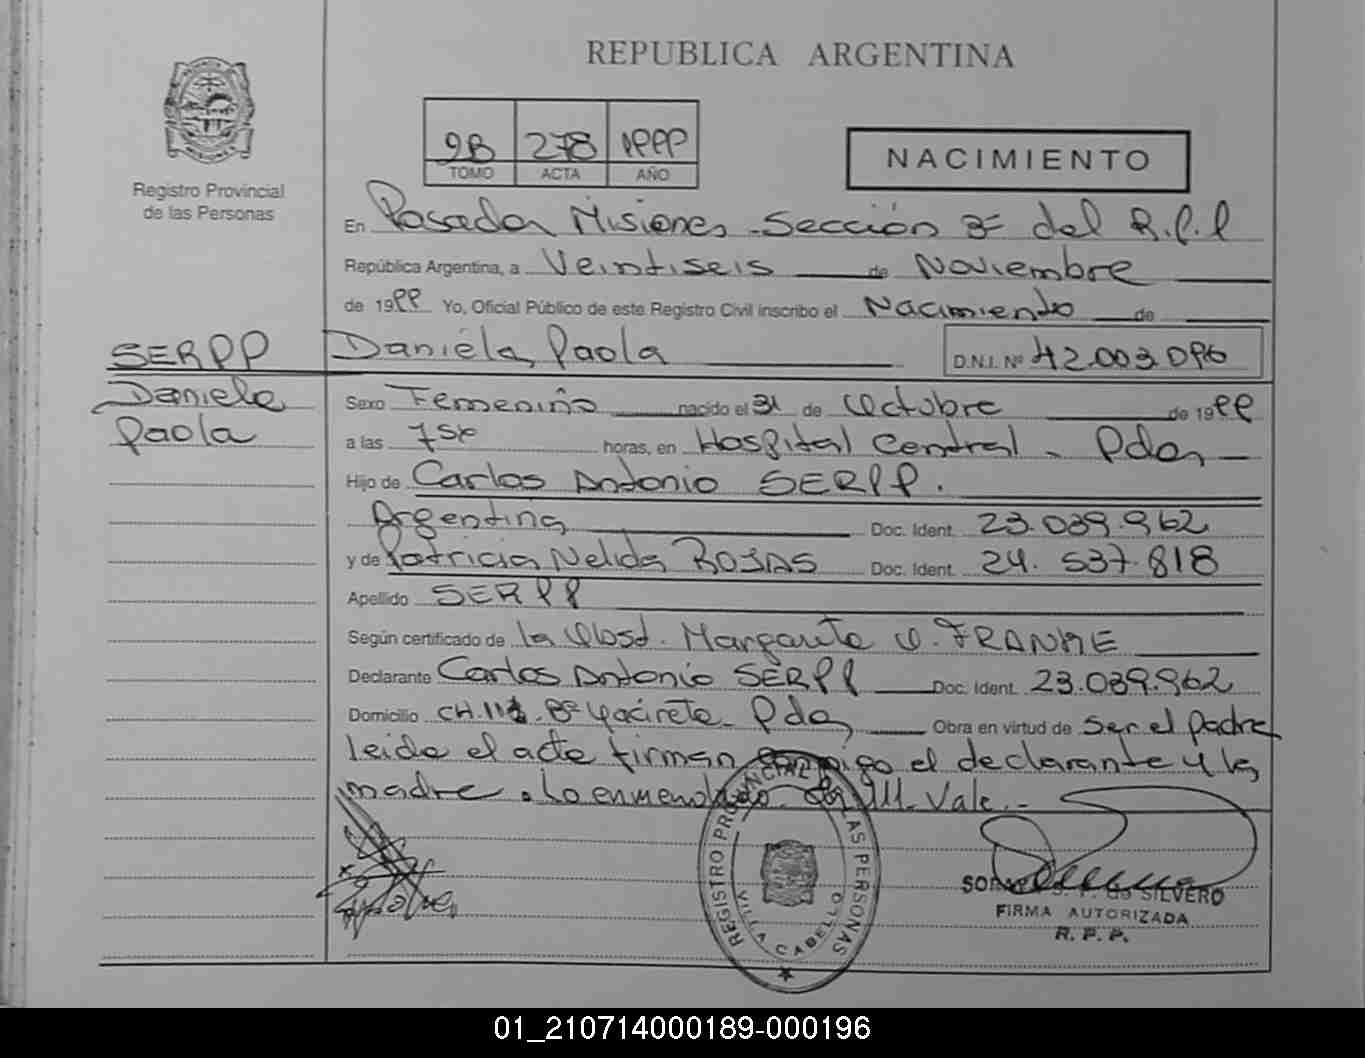 REPUBLICA ARGENTINA
Registro Provincial
de las Personas
9B 278 1999
TOMO ACTA AÑO
NACIMIENTO
En Posadas Misiones - Sección 3ª del R.P.P
República Argentina, a Veintiseis de Noviembre
de 1999 Yo, Oficial Público de este Registro Civil inscribo el Nacimiento de
SERPP Daniela Paola D.N.I. Nº 42.003.096
Daniela
Paola
Sexo Femenino nacido el 31 de Octubre de 1999
a las horas, en Hospital Central - Pdas
Hijo de Carlos Antonio SERPP.
Argentina Doc. Ident. 23.039.962
y de Patricia Nelida ROJAS Doc. Ident. 24.537.818
Apellido SERPP
Según certificado de la Obst. Margarita O. FRANKE
Declarante Carlos Antonio SERPP Doc. Ident. 23.039.962
Domicilio CH. Bº Yaciretá - Pdas Obra en virtud de Ser el padre
leida el acta firman conmigo el declarante y la
madre. Lo enmendado Vale.-
REGISTRO PROVINCIAL DE LAS PERSONAS
VILLA CABELLO
de SILVERO
FIRMA AUTORIZADA
R. P. P.
01_210714000189-000196